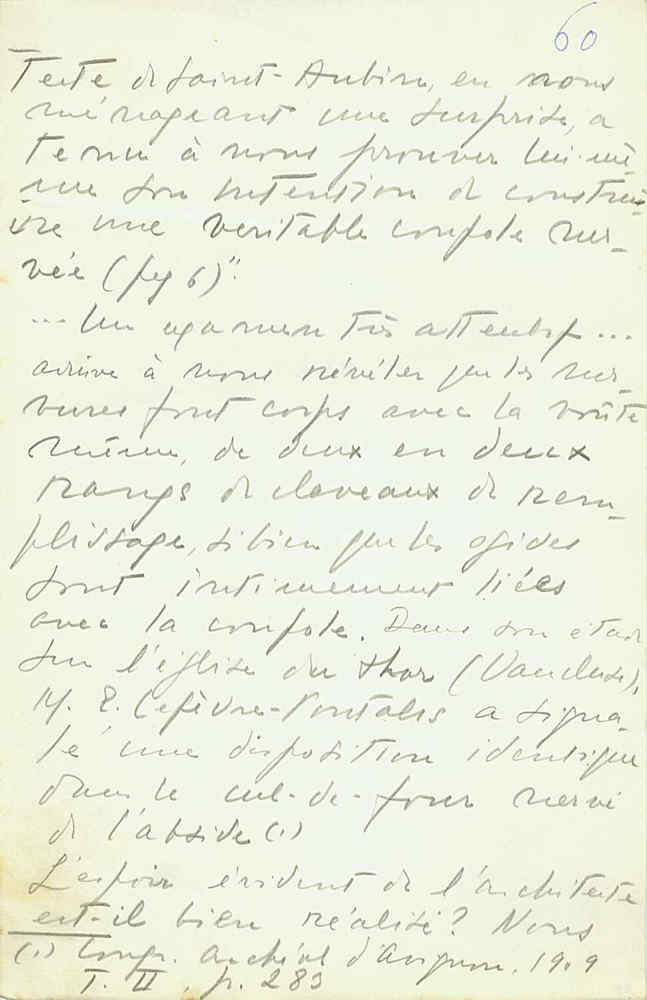 60
tecte de Saint-Aubin, en nous
ménageant une surprise, a
tenu à nous prouver lui-mê-
me son intention de construi-
re une veritable coupole ner-
vée (fig 6)".
... Un examen très attentif ...
arrive à nous révéler que les ner-
vures font corps avec la voûte
même, de deux en deux
rangs de claveaux de rem-
plissage, si bien que les ogives
sont intimement liées
avec la coupole. Dans son étude
sur l'église du Thor (Vaucluse),
M. E. Lefèvre-Pontalis a signa-
lé une disposition identique
dans le cul-de-four nervé
de l'abside (1)
L'espoir évident de l'architecte
est-il bien réalisé? Nous
(1) Congr. archéol d'Avignon. 1909
T. II, p. 283